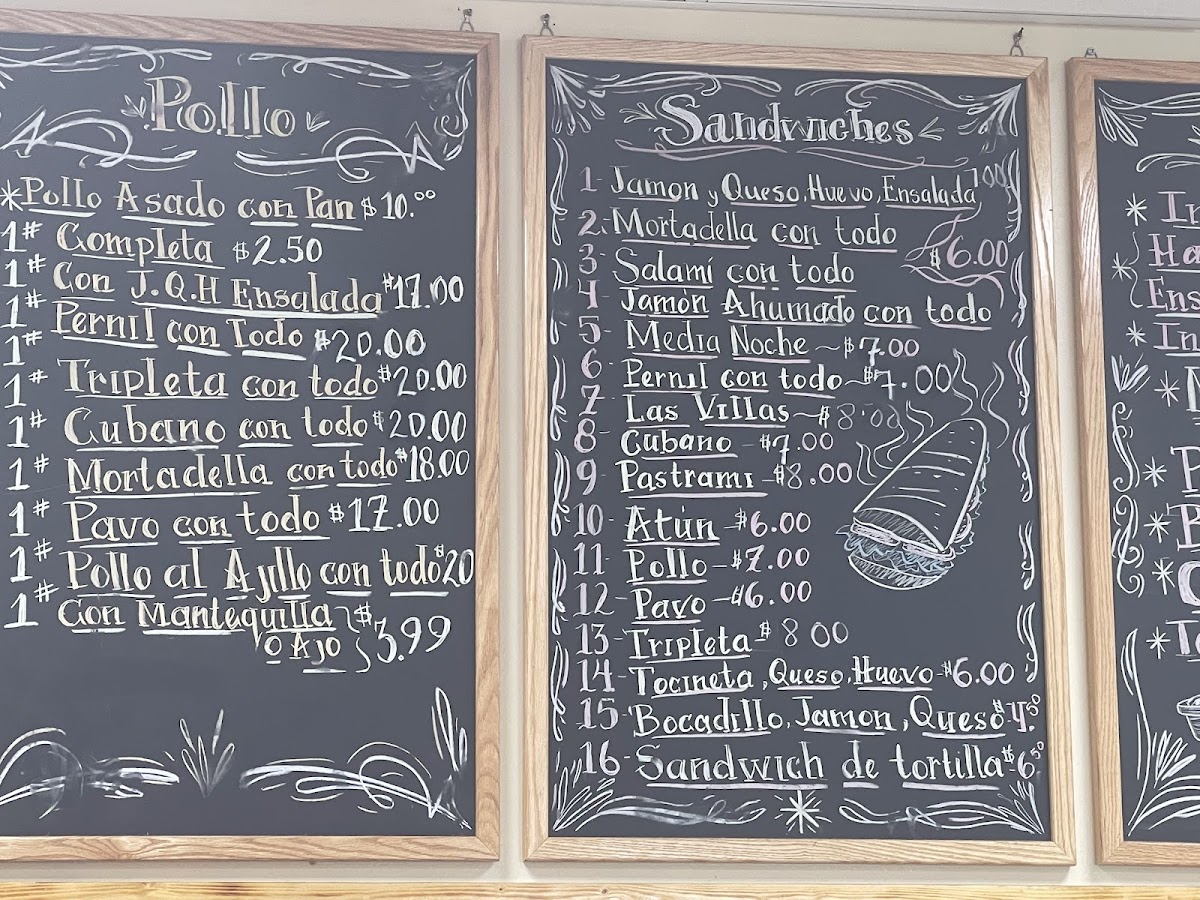 Pollo
*Pollo Asado con Pan $10.00
1# Completa $2.50
1# Con J.Q.H Ensalada $17.00
1# Pernil con Todo $20.00
1# Tripleta con todo $20.00
1# Cubano con todo $20.00
1# Mortadella con todo $18.00
1# Pavo con todo $17.00
1# Pollo al Ajillo con todo $20
1# Con Mantequilla
o Ajo } $3.99
Sandwiches
1- Jamon y Queso, Huevo, Ensalada 7.00
2- Mortadella con todo
$6.00
3- Salami con todo
4- Jamón Ahumado con todo
5- Media Noche ~ $7.00
6- Pernil con todo ~ $7.00
7- Las Villas ~ $8.00
8- Cubano - $7.00
9- Pastrami - $8.00
10- Atún - $6.00
11- Pollo - $7.00
12- Pavo - $6.00
13- Tripleta - $8.00
14- Tocineta, Queso, Huevo - $6.00
15- Bocadillo, Jamon, Queso - $4.50
16- Sandwich de tortilla - $6.50